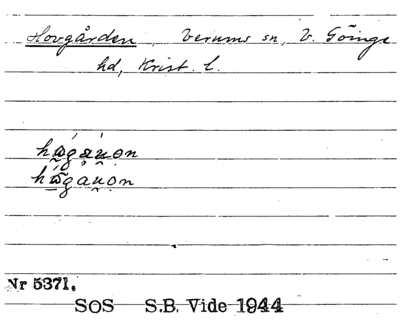 Hovgården, Verums sn, V. Göinge
hd, Krist. l.
Nr 5371.
SOS S.B. Vide 1944